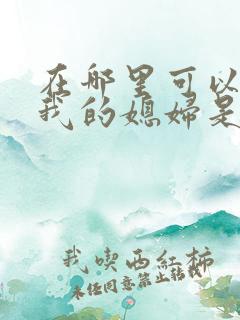 在哪里可以
我的媳妇是
我喫西紅柿
未经同意禁止转载